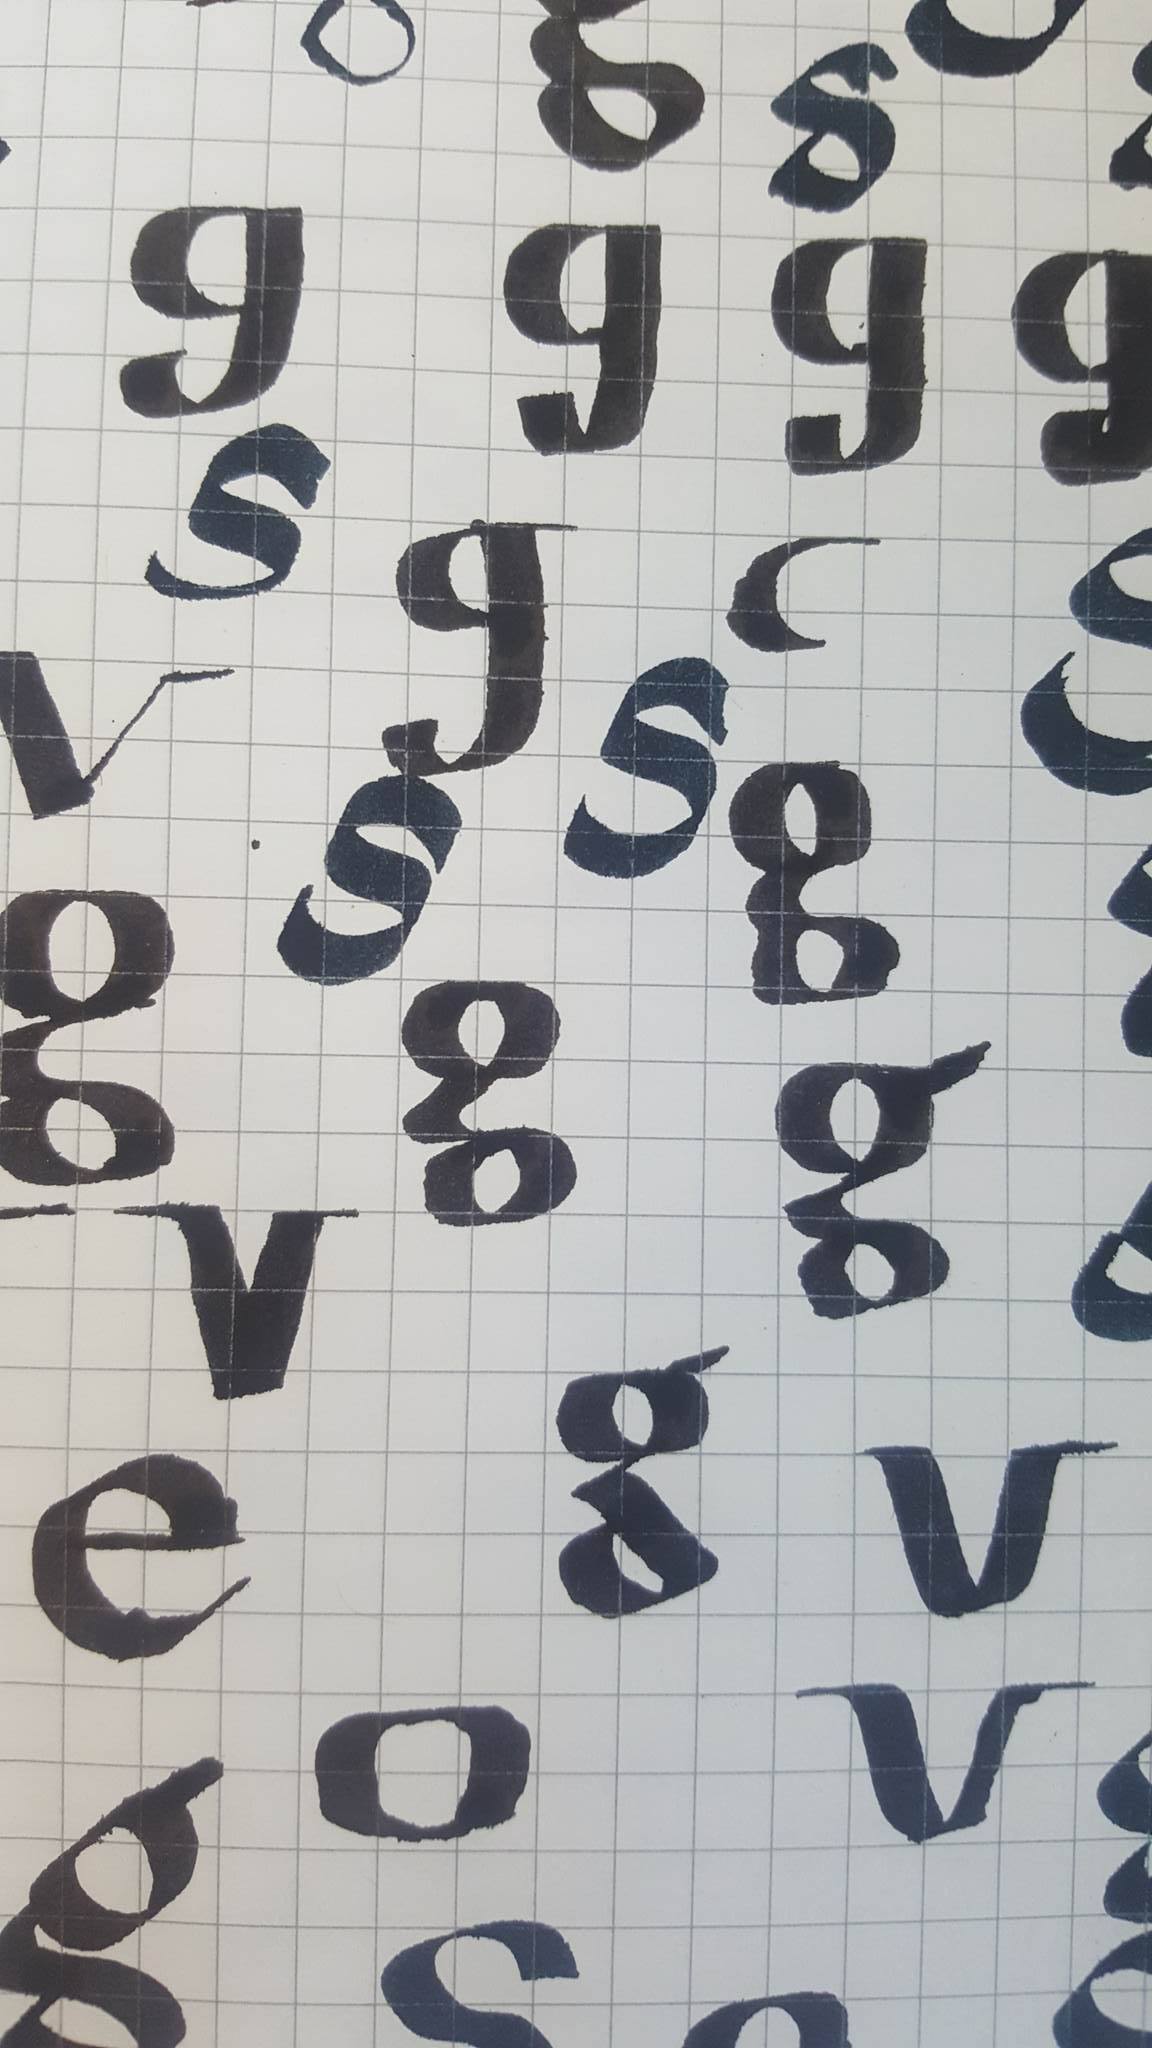 o g s
g g g g
s
g c
v s
s g
g g
g
v
g
e v
o v
g
s